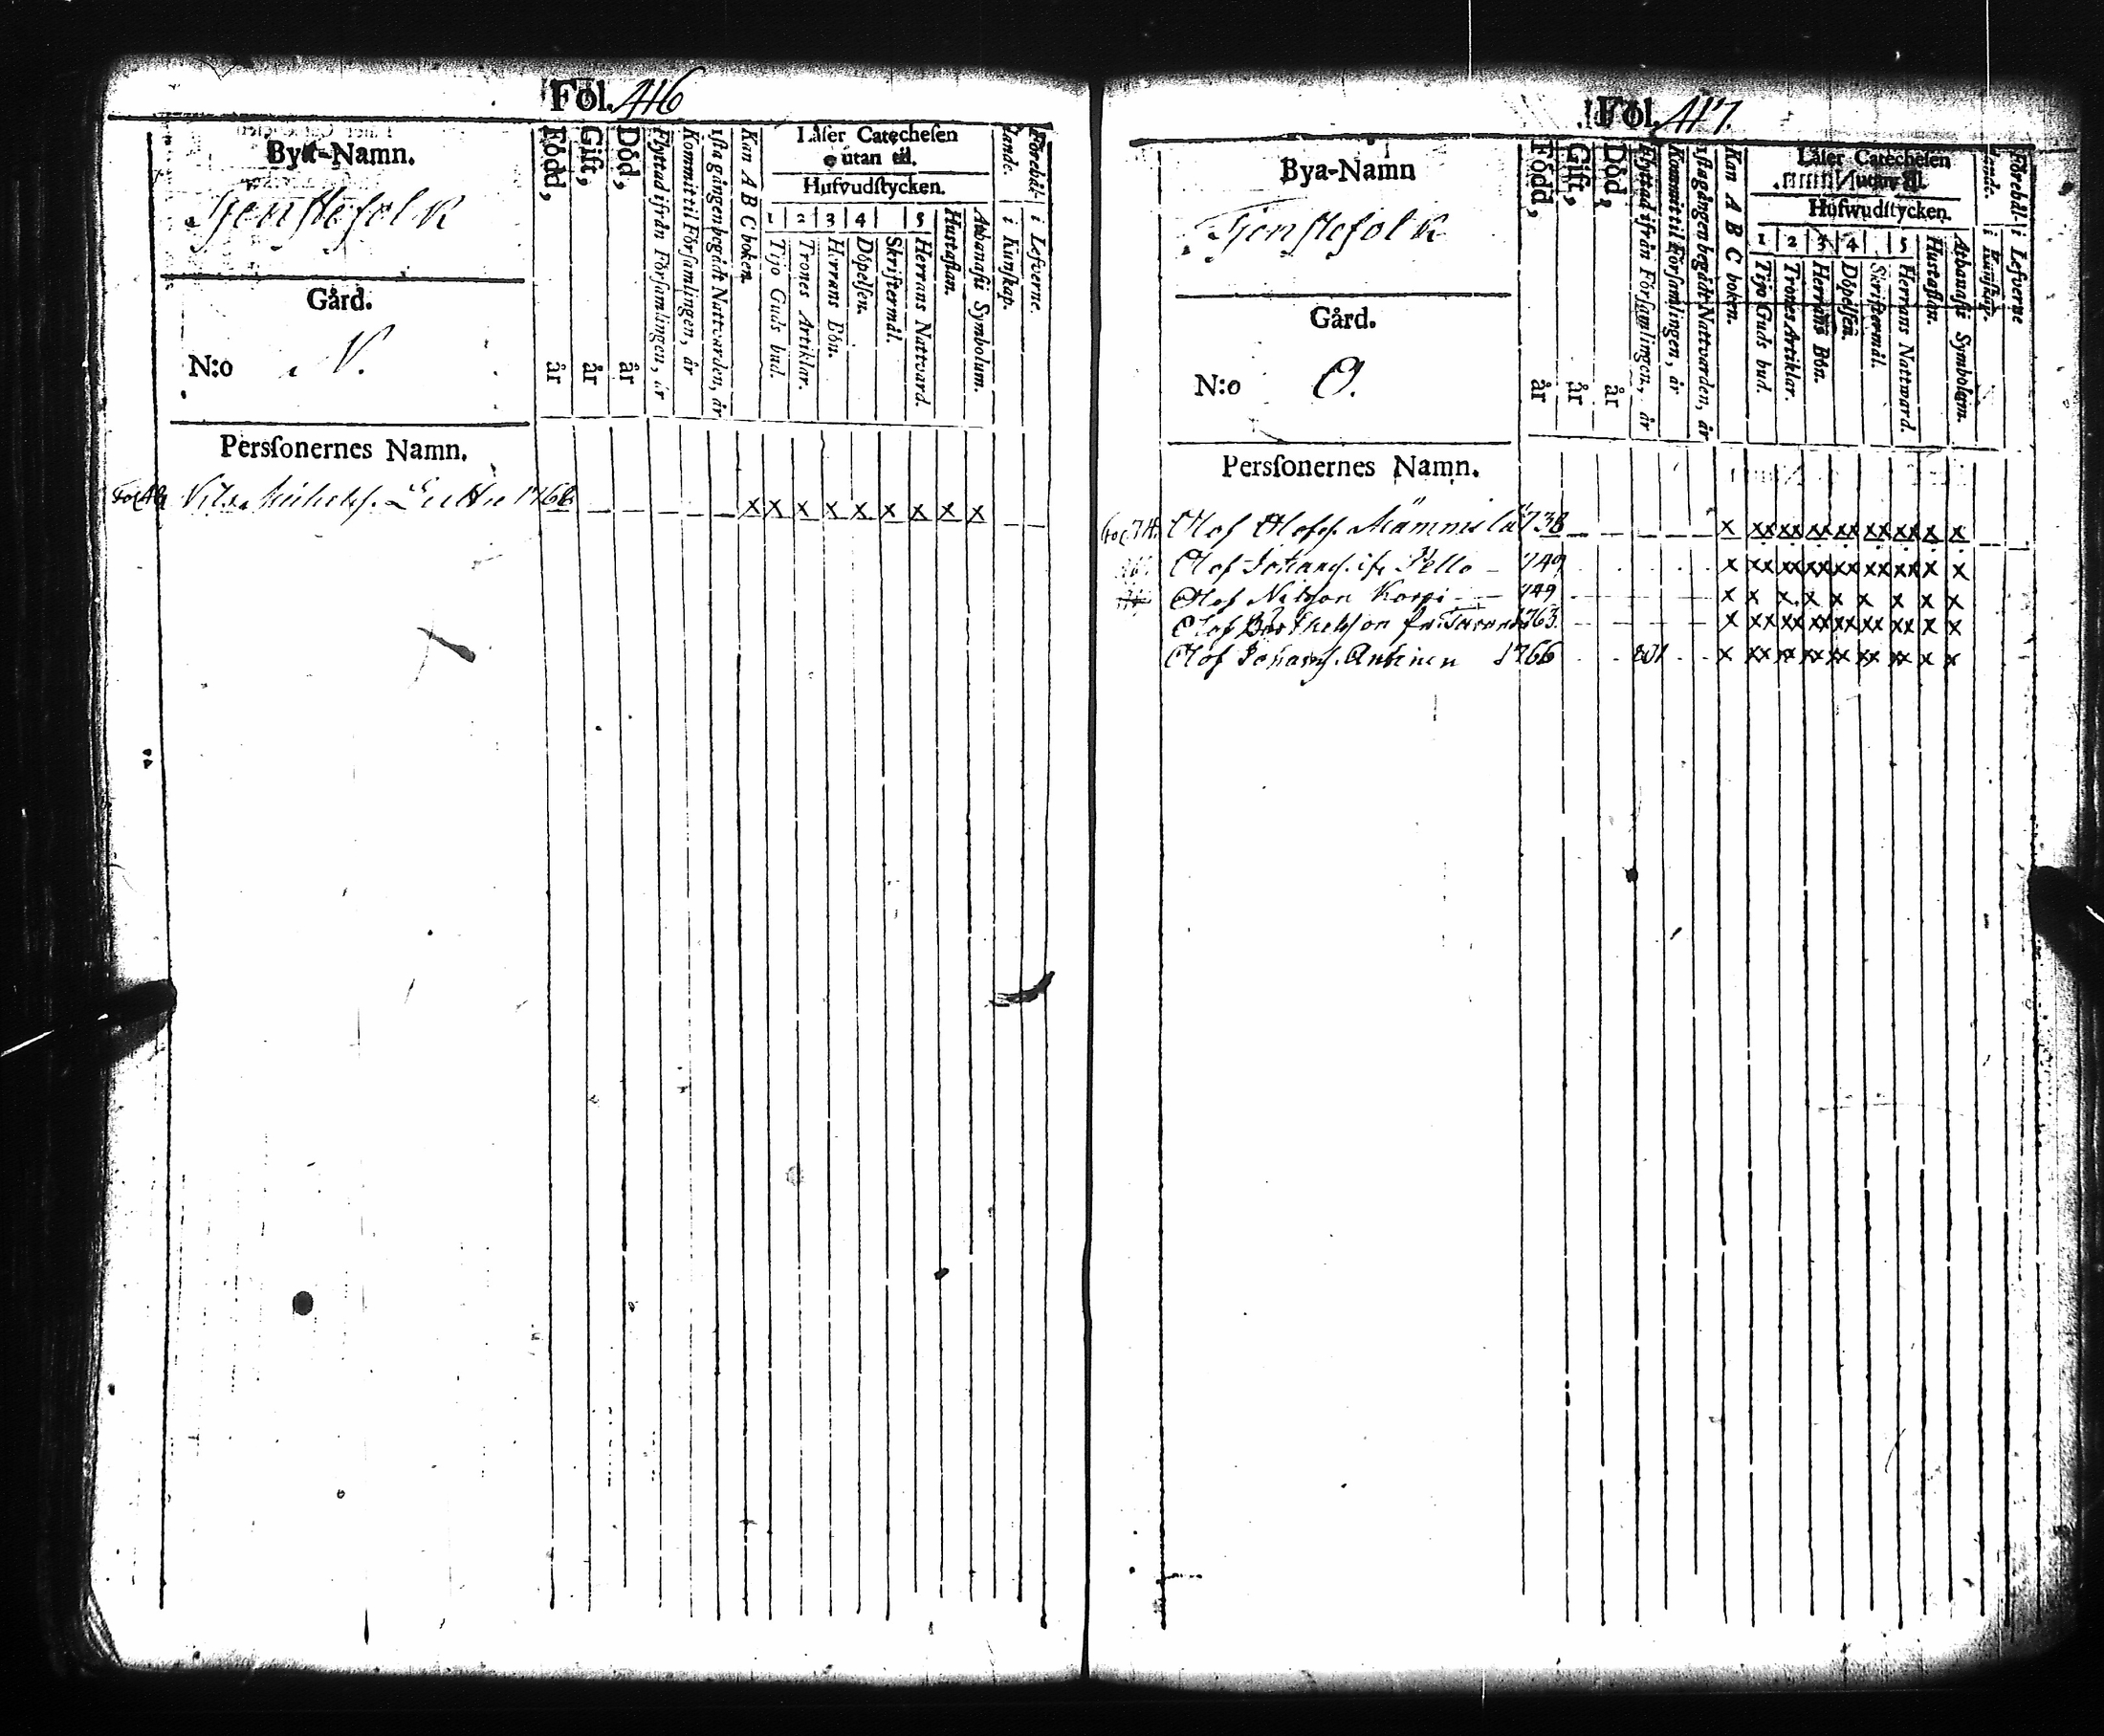 Fol. 416
Bya-Namn.
Tjenstefolk
Gård.
N:o N.
Persſonernes Namn.
Född, år
Gift, år
Död, år
Flyttad ifrån Förſamlingen, år
Kommit til Förſamlingen, år
1ſta gången begådt Nattvarden, år
Kan A B C boken.
Läſer Catecheſen
utan til.
Hufvudſtycken.
1 2 3 4 5
Tijo Guds bud.
Trones Artiklar.
Herrans Bön.
Döpelſen.
Skriftermål.
Herrans Nattvard.
Huſtaflan.
Athanaſii Symbolum.
Förehållande.
i Kunſkap.
i Lefverne.
Nils 1766 x x x x x x x x x
Fol. 417.
Bya-Namn
Tjenstefolk
Gård.
N:o O.
Persſonernes Namn.
Född, år
Gift, år
Död, år
Flyttad ifrån Förſamlingen, år
Kommit til Förſamlingen, år
1ſta gången begådt Nattvarden, år
Kan A B C boken.
Läſer Catecheſen
utan til.
Hufwudſtycken.
1 2 3 4 5
Tijo Guds bud.
Trones Artiklar.
Herrans Bön.
Döpelſen.
Skriftermål.
Herrans Nattvard.
Huſtaflan.
Athanaſii Symbolum.
Förehållande.
i Kunſkap.
i Lefverne
Olof Olofss. Mämmilä 1738 x xx xx xx xx xx xx x x
Olof Johanss. Pello 749 x xx xx xx xx xx xx x x
Olof Nilsson Korpi 749 x x x x x x x x x
Olof 1763. x xx xx xx xx xx xx x x
Olof Johanss. Antinen 1766 801 x xx xx xx xx xx xx x x